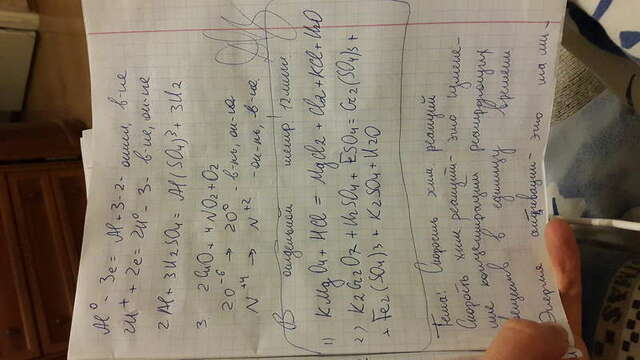 Al⁰ - 3e = Al+3 - 2 - окисл, в-ие
2H⁺ + 2e = 2H⁰ - 3 - в-ие, ок-ие
2Al + 3H2SO4 = Al(SO4)3 + 3H2
3 2CuO + 4NO2 + O2
2O⁻⁶ → 2O⁰ - в-нь, ок-ие
N⁺⁴ → N⁺² ок-нь, в-ие
В отдельной тетр 12 лист
1) KMgO4 + HCl = MgCl2 + Cl2 + KCl + H2O
2) K2Cr2O7 + H2SO4 + FSO4 = Cr2(SO4)3 +
+ Fe2(SO4)3 + K2SO4 + H2O
Тема: Скорость хим реакций
Скорость хим реакций - это измене-
ние концентрации реагирующих
веществ в единицу времени
Энергия активации - это та ми-